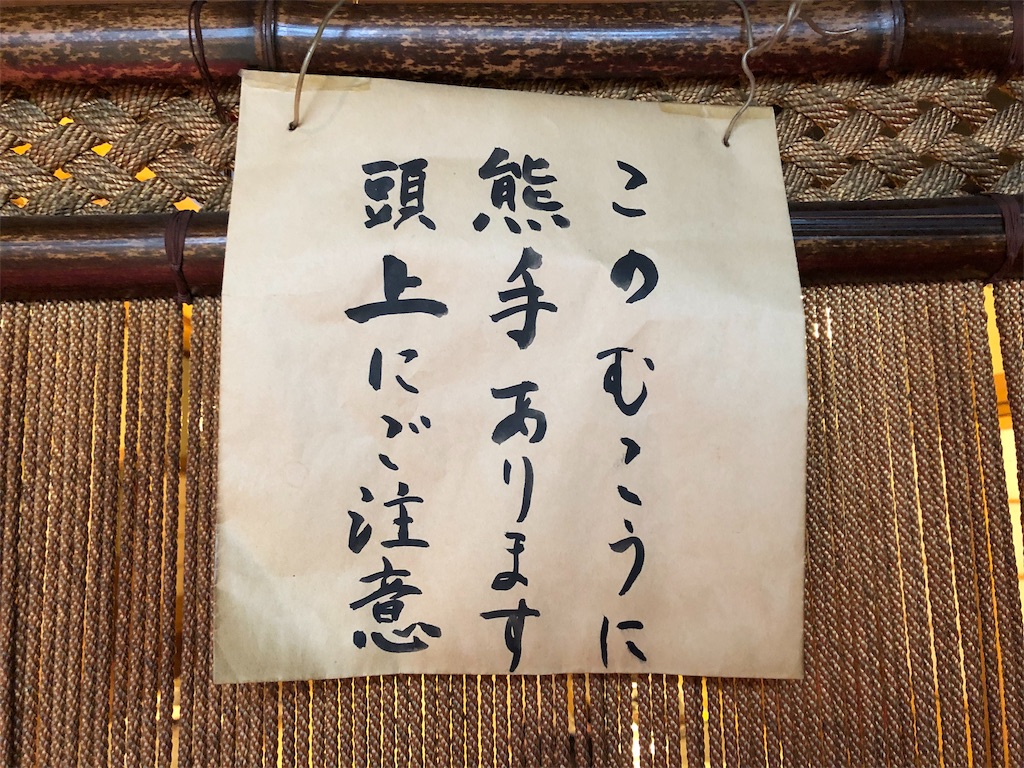 このむこうに
熊手あります
頭上にご注意